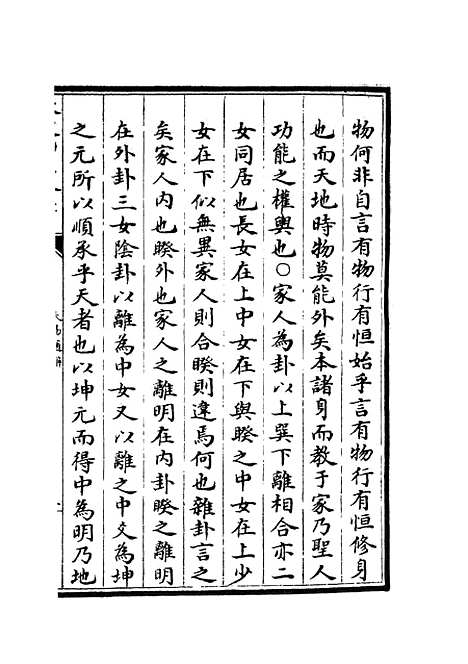 物何非自言有物行有恒始乎言有物行有恒修身
也而天地時物莫能外矣本諸身而教于家乃聖人
功能之權輿也○家人為卦以上巽下離相合亦二
女同居也長女在上中女在下與睽之中女在上少
女在下似無異家人則合睽則違焉何也雜卦言之
矣家人内也睽外也家人之離明在内卦睽之離明
在外卦三女陰卦以離為中女又以離之中爻為坤
之元所以順承乎天者也以坤元而得中為明乃地